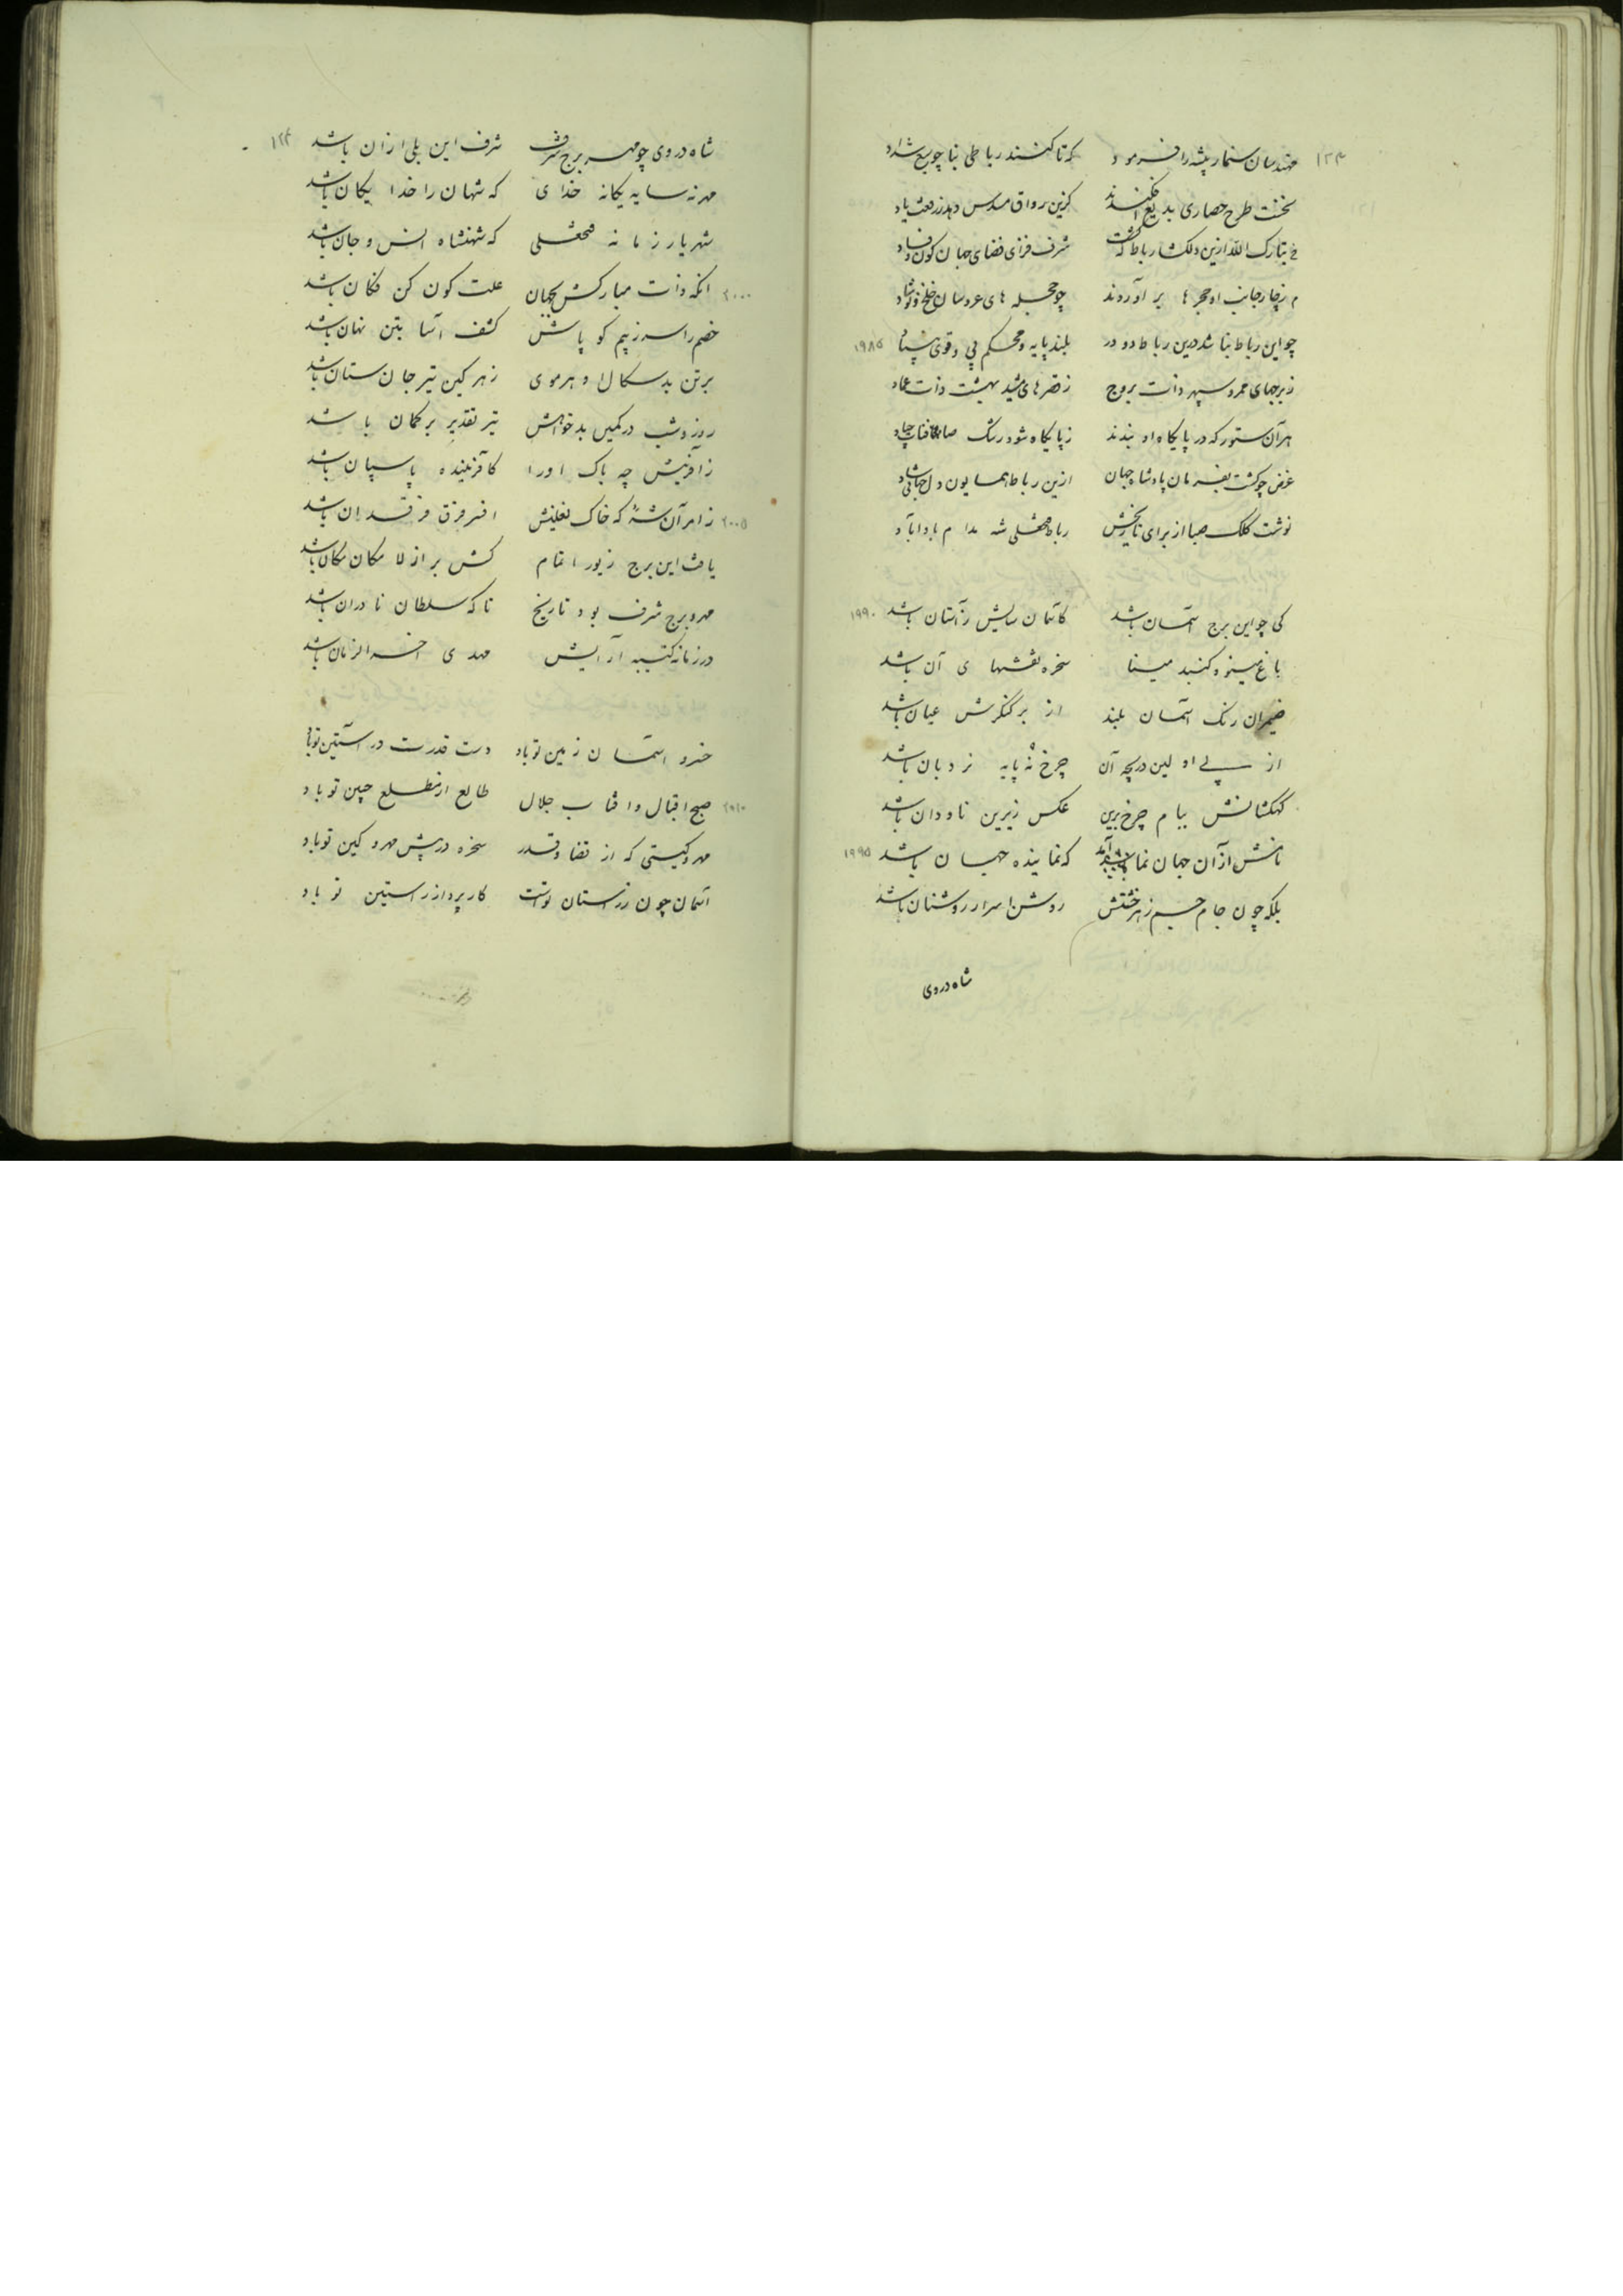 ۱۲۳
مهندسان سنمار پیشه را فرمود که تا کنند رباطی بنا چو سبع شداد
نخست طرح حصاری بدیع افکندند کزین رواق مسدس دهد ز رفعت یاد
تبارک الله ازین دلگشا رباط که گشت شرف فزای فضای جهان کون و فساد
م ز چار جانب او حجرها بر آوردند چو حجله های عروسان خلخ و نوشاد
چو این رباط بنا شد درین رباط دو در بلند پایه و محکم پی و قوی بنیاد ۱۹۸۵
ز برجهای سپهر ذات بروج ز قصرهای مشید بهشت ذات عماد
هر آن ستور که در پایگاه او بندند ز پایگاه شود رشک
غرض چو گشت بفرمان پادشاه جهان ازین رباط همایون دل جهانی شاد
نوشت کلک صبا از برای تاریخش رباط فتحعلی شه مدام باد آباد
کی چو این برج آسمان باشد کاسمان سایش ز آستان باشد ۱۹۹۰
باغ مینو و گنبد مینا سخره نقشهای آن باشد
ضیمران رنگ آسمان بلند از بر کنگرش عیان باشد
از پی اولین دریچه آن چرخ نه پایه نردبان باشد
کهکشانش ببام چرخ برین عکس زیرین ناودان باشد
نامش از آن جهان نما آمد که نماینده جهان باشد ۱۹۹۵
بلکه چون جام جم ز هر خشتش روشن اسرار روشنان باشد
شاه در وی
۱۲۴
شاه در وی چو مهر برج شرف شرف این بلی از آن باشد
مه نه سایه یگانه خدای که شهان را خدایگان باشد
شهریار زمانه فتحعلی که شهنشاه انس و جان باشد
انکه ذات مبارکش بجهان علت کون کن فکان باشد ۲۰۰۰
خصم را سر ز بیم کوپالش کشف آسا بتن نهان باشد
بر تن بدسگال او هر موی زهرگین تیر جان ستان باشد
روز و شب در کمین بدخواهش تیر تقدیر بر کمان باشد
ز آفرینش چه باک او را کافریننده پاسبان باشد
ز امر آن شه که خاک نعلینش افسر فرق فرقدان باشد ۲۰۰۵
یافت این برج زیور اتمام کش بر از لا مکان مکان باشد
مه و برج شرف بود تاریخ تا که سلطان نادران باشد
در زمانه کتیبه آرایش مهدی اخر الزمان باشد
خسروا آسمان زمین تو باد دست قدرت در آستین تو باد
صبح اقبال و افتاب جلال طالع از مطلع جبین تو باد ۲۰۱۰
مهر و کینی که از قضا و قدر سخره در پیش مهر و کین تو باد
آسمان چون در استان تو است کارپرداز راستین تو باد